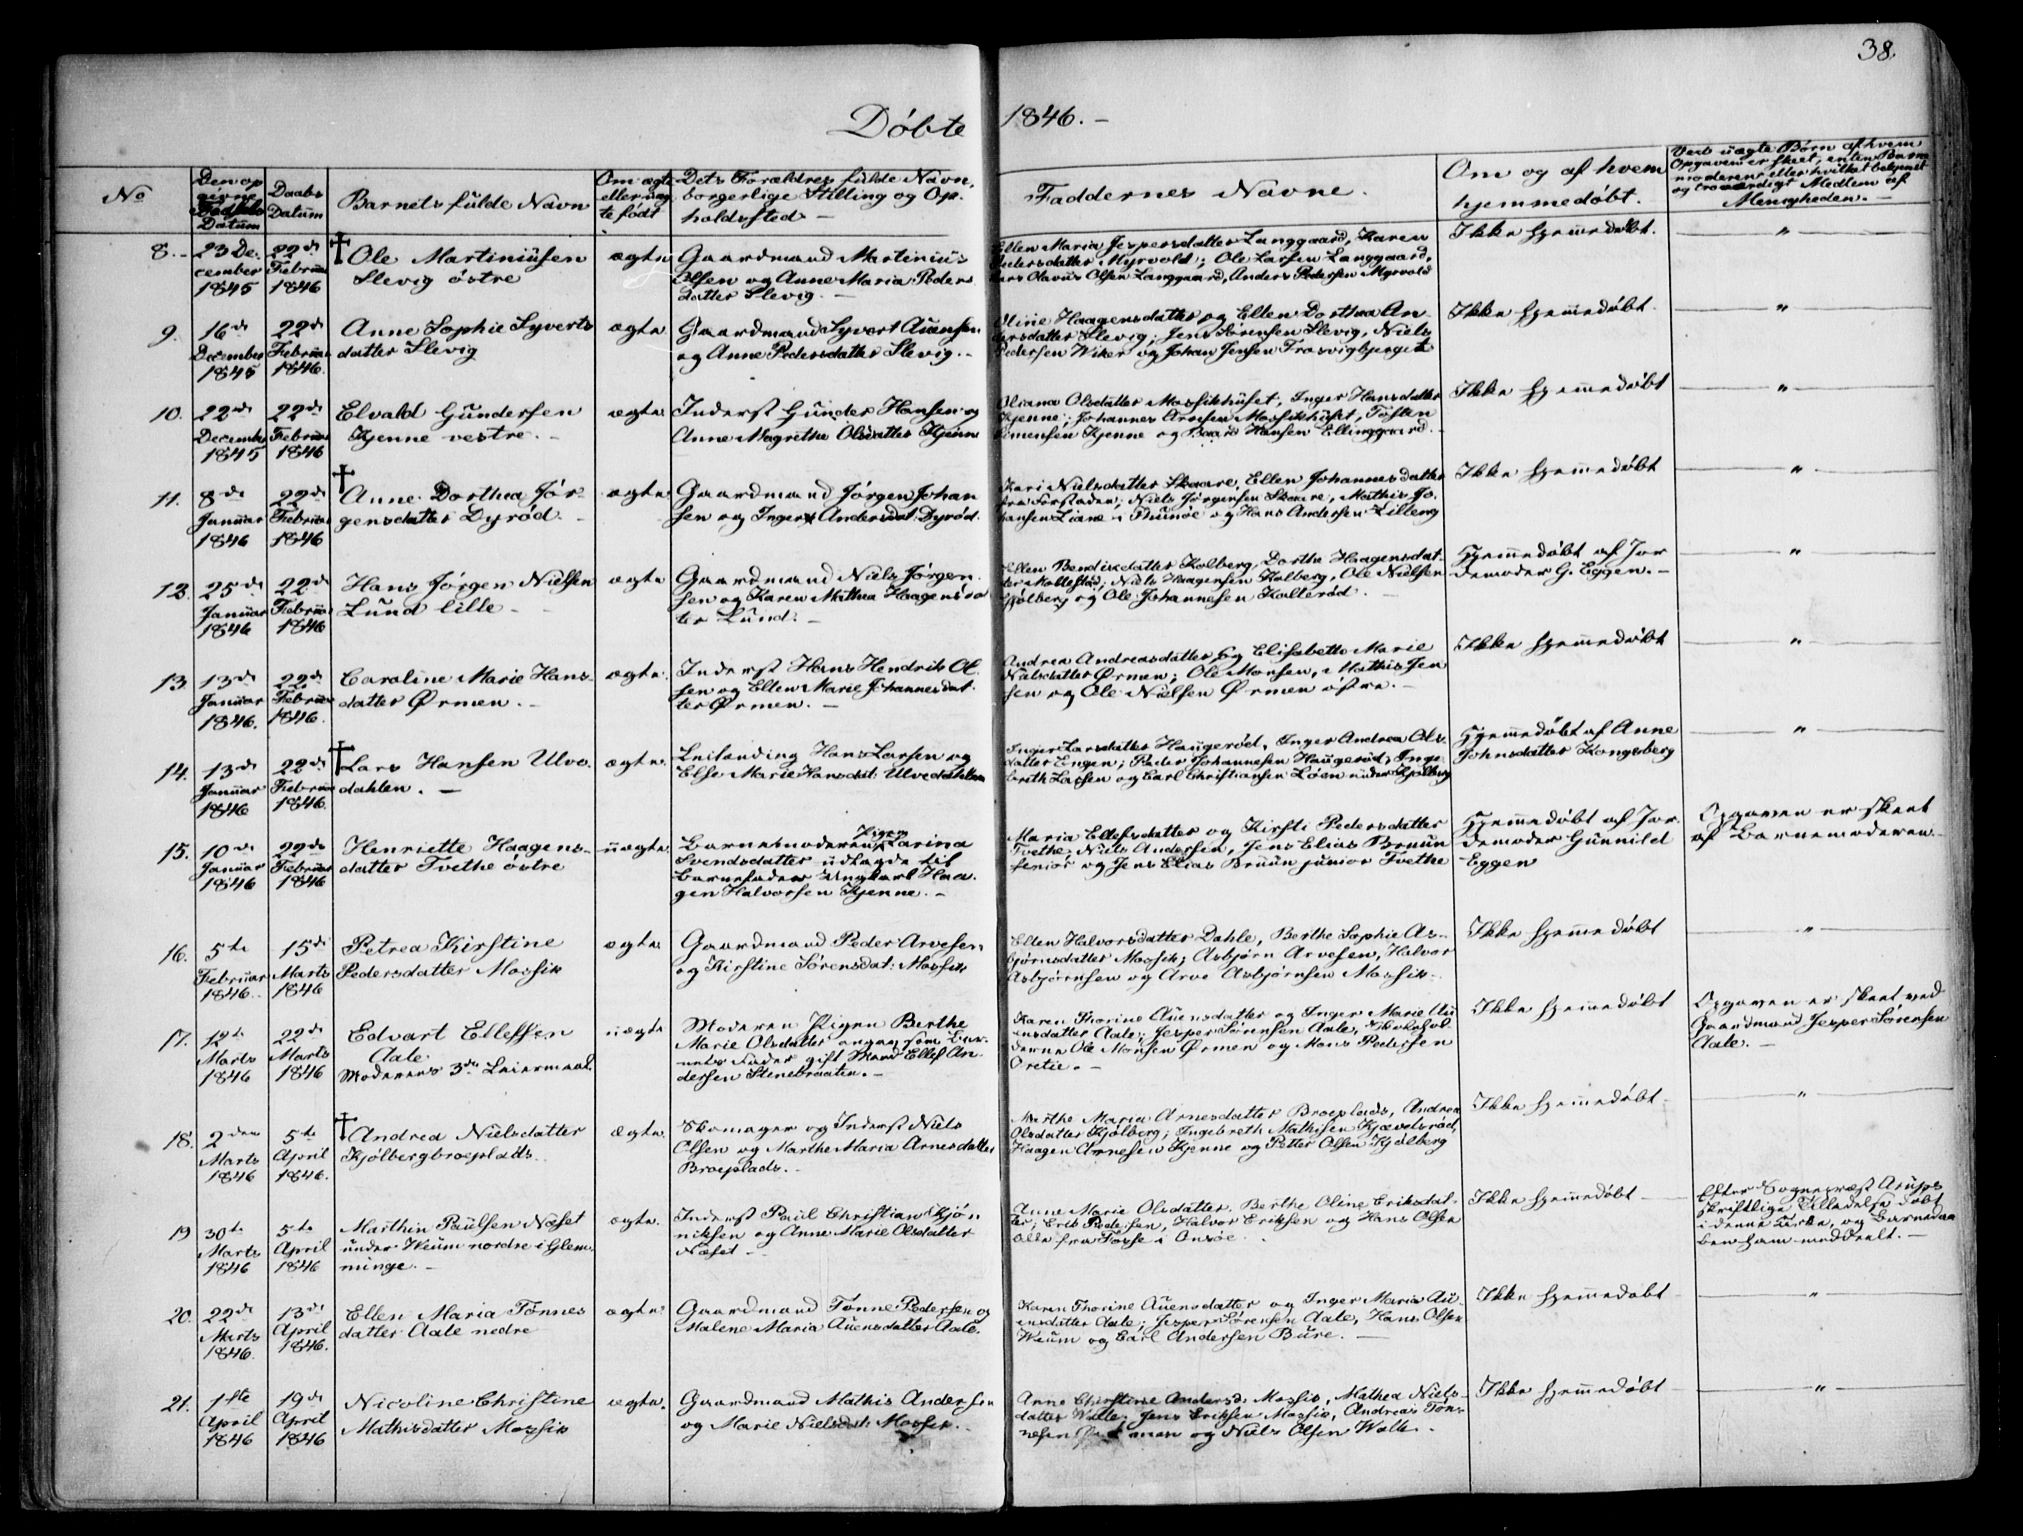 38.
Døbte 1846. –
No
Den op
givne
Fødsels
Datum
Daabs
Datum
Barnets fulde Navn
Om ægte
eller uæg
te født
Dets Forældres fulde Navn,
borgerlige Stilling og Op-
holdssted –
Faddernes Navne.
Om og af hvem
hjemmedøbt.
Ved uægte Børn af hvem
Opgaven er skeet, enten Barne
moderen eller hvilket bekjendt
og troværdigt Medlem af
Menigheden. –
8. 23 De-
cember
1845
22de
Februar
1846
† Ole Martiniusen
Slevig østre
ægte
Gaardmand Martinius
Olsen og Anne Maria Peders
datter Slevig. –
Ellen Maria Jespersdatter Langgaard, Karen
Pedersdatter Myrvold; Ole Larsen Langgaard,
Lars Olavus Olsen Langgaard, Anders Pedersen Myrvold
Ikke hjemmedøbt.
"
9. 16de
December
1845
22de
Februar
1846.
Anne Sophie Syverts
datter Slevig
ægte
Gaardmand Syvert Auensen
og Anne Pedersdatter Slevig. –
Oline Haagensdatter og Ellen Dorthea An-
dersdatter Slevig, Jens Sørensen Slevig, Niels
Pedersen Wiker og Johan Jensen Trosvigbjerget
Ikke hjemmedøbt.
"
10. 22de
December
1845
22de
Februar
1846
Elvald Gundersen
Kjenne vestre. –
ægte
Inderst Gunder Hansen og
Anne Magrethe Olsdatter Kjenne
Oliane Olsdatter Mossikhuset, Inger Hansdatter
Kjenne; Johannes Arnesen Mossikhuset, Tosten
Simensen Kjenne og Baard Hansen Ellinggaard. –
Ikke hjemmedøbt
"
11. 8de
Januar
1846
22de
Februar
1846
† Anne Dorthea Jør-
gensdatter Dyrød. –
ægte
Gaardmand Jørgen Johan
sen og Inger Andersdat: Dyrød.
Kari Nielsdatter Skaare, Ellen Johannesdatter
fra Forstaden; Niels Jørgensen Skaare, Mathis Jo-
hansen Liane i Thunøe og Hans Andersen Lilleng
Ikke hjemmedøbt
"
12. 25de
Januar
1846
22de
Februar
1846
Hans Jørgen Nielsen
Lund lille –
ægte
Gaardmand Niels Jørgen
sen og Karen Mathea Haagensda
ter Lund. –
Ellen Bendixdatter Kolberg, Dorthe Haagensdat-
ter Moltestad; Niels Haagensen Kolberg, Ole Nielsen
Kjølberg og Ole Johannesen Kolterød. –
Hjemmedøbt af Jor
demoder G. Eggen. –
"
13. 13de
Januar
1846.
22de
Februar
1846.
Caroline Marie Hans-
datter Ørmen. –
ægte.
Inderst Hans Hendrik Ol
sen og Ellen Marie Johannesdat
ter Ørmen. –
Andrea Andreasdatter og Elisabeth Marie
Nielsdatter Ørmen; Ole Monsen, Mathis Jen
sen og Ole Nielsen Ørmen østre. –
Ikke hjemmedøbt
"
14. 13de
Januar
1846
22de
Februar
1846.
† Lars Hansen Ulve
dahlen. –
ægte.
Leilending Hans Larsen og
Else Marie Hansdat: Ulvedahlen
Inger Larsdatter Haugerød, Inger Andrea Ols-
datter Engen; Peder Johannesen Haugerød, Inge-
breth Larsen og Carl Christiansen Løen under Kjølberg
Hjemmedøbt af Anne
Johnsdatter Kongsberg
"
15. 10de
Januar
1846
22de
Februar
1846
Henriette Haagens-
datter Tvethe østre
uægte
Barnemoderen Pigen Karina
Svendsdatter udlagde til
Barnefader Ungkarl Haa-
gen Halvorsen Kjenne. –
Maria Ellefsdatter og Kirsti Pedersdatter
Tvethe, Niels Andersen, Jens Elias Bruun
senior og Jens Elias Bruun junior Tvethe
Hjemmedøbt af Jor-
demoder Gunnild
Eggen
Opgaven er skeet
af Barnemoderen. –
16. 5te
Februar
1846.
15de
Marts
1846
Petrea Kirstine
Pedersdatter Mossik
ægte
Gaardmand Peder Arvesen
og Kirstine Sørensdat: Mossik
Ellen Halvorsdatter Dahle, Berthe Sophie As-
bjørnsdatter Mossik; Asbjørn Arvesen, Halvor
Asbjørnsen og Arve Asbjørnsen Mossik. –
Ikke hjemmedøbt
"
17. 12te
Marts
1846
22de
Marts
1846
Edvart Ellefsen
Aale.
Moderens 3die Leiermaal.
uægte
Moderen Pigen Berthe
Marie Olsdatter angav som Bar-
nets Fader gift Mand Ellef An-
dersen Stenebraaten. –
Karen Thorine Auensdatter og Inger Marie Au
ensdatter Aale; Jesper Sørensen Aale,
Ole Monsen Ørmen og Mons Pedersen
Oretie. –
Ikke hjemmedøbt
Opgaven er skeet ved
Gaardmand Jesper Sørensen
Aale. –
18. 2den
Marts
1846
5te
April
1846.
† Andrea Nielsdatter
Kjølbergbroeplads.
ægte.
Skomager og Inderst Niels
Olsen og Marthe Maria Arnesdatter
Broeplads. –
Marthe Maria Arnesdatter Broeplads, Andrea
Olsdatter Kjølberg; Ingebreth Mathisen Kjævelsrød,
Haagen Arnesen Kjenne og Petter Olsen Kjølberg
Ikke hjemmedøbt
"
19 30te
Marts
1846
5te
April
1846
Marthin Paulsen Næset
under Weum nordre i Glem-
minge. –
ægte.
Inderst Paul Christian Kjøn
niksen og Anne Marie Olsdatter
Næset –
Anne Marie Olsdatter, Berthe Oline Eriksdat-
ter; Erik Pedersen, Halvor Eriksen og Hans Olsen
alle fra Fosse i Onsøe.
Ikke hjemmedøbt –
Efter Sognepræst Arups
skriftlige Tilladelse døbt
i denne Kirke, og Barnedaa
ben ham meddeelt. –
20. 22de
Marts
1846.
13de
April
1846.
Ellen Maria Tønnes
datter Aale nedre
ægte.
Gaardmand Tønne Pedersen og
Malene Maria Auensdatter Aale.
Karen Thorine Auensdatter og Inger Maria Au-
ensdatter Aale; Jesper Sørensen Aale, Hans Olsen
Weum og Carl Andersen Bure. –
Ikke hjemmedøbt
"
21. 1ste
April
1846
19de
April
1846
Nicoline Christine
Mathisdatter Mossik
ægte.
Gaardmand Mathis Andersen
og Marie Nielsdat: Mossik. –
Anne Christine Andersd: Mossik, Mathea Niels-
datter Walle; Jens Eriksen Mossik, Andreas Tøn-
nesen og Niels Olsen Walle.
Ikke hjemmedøbt
"